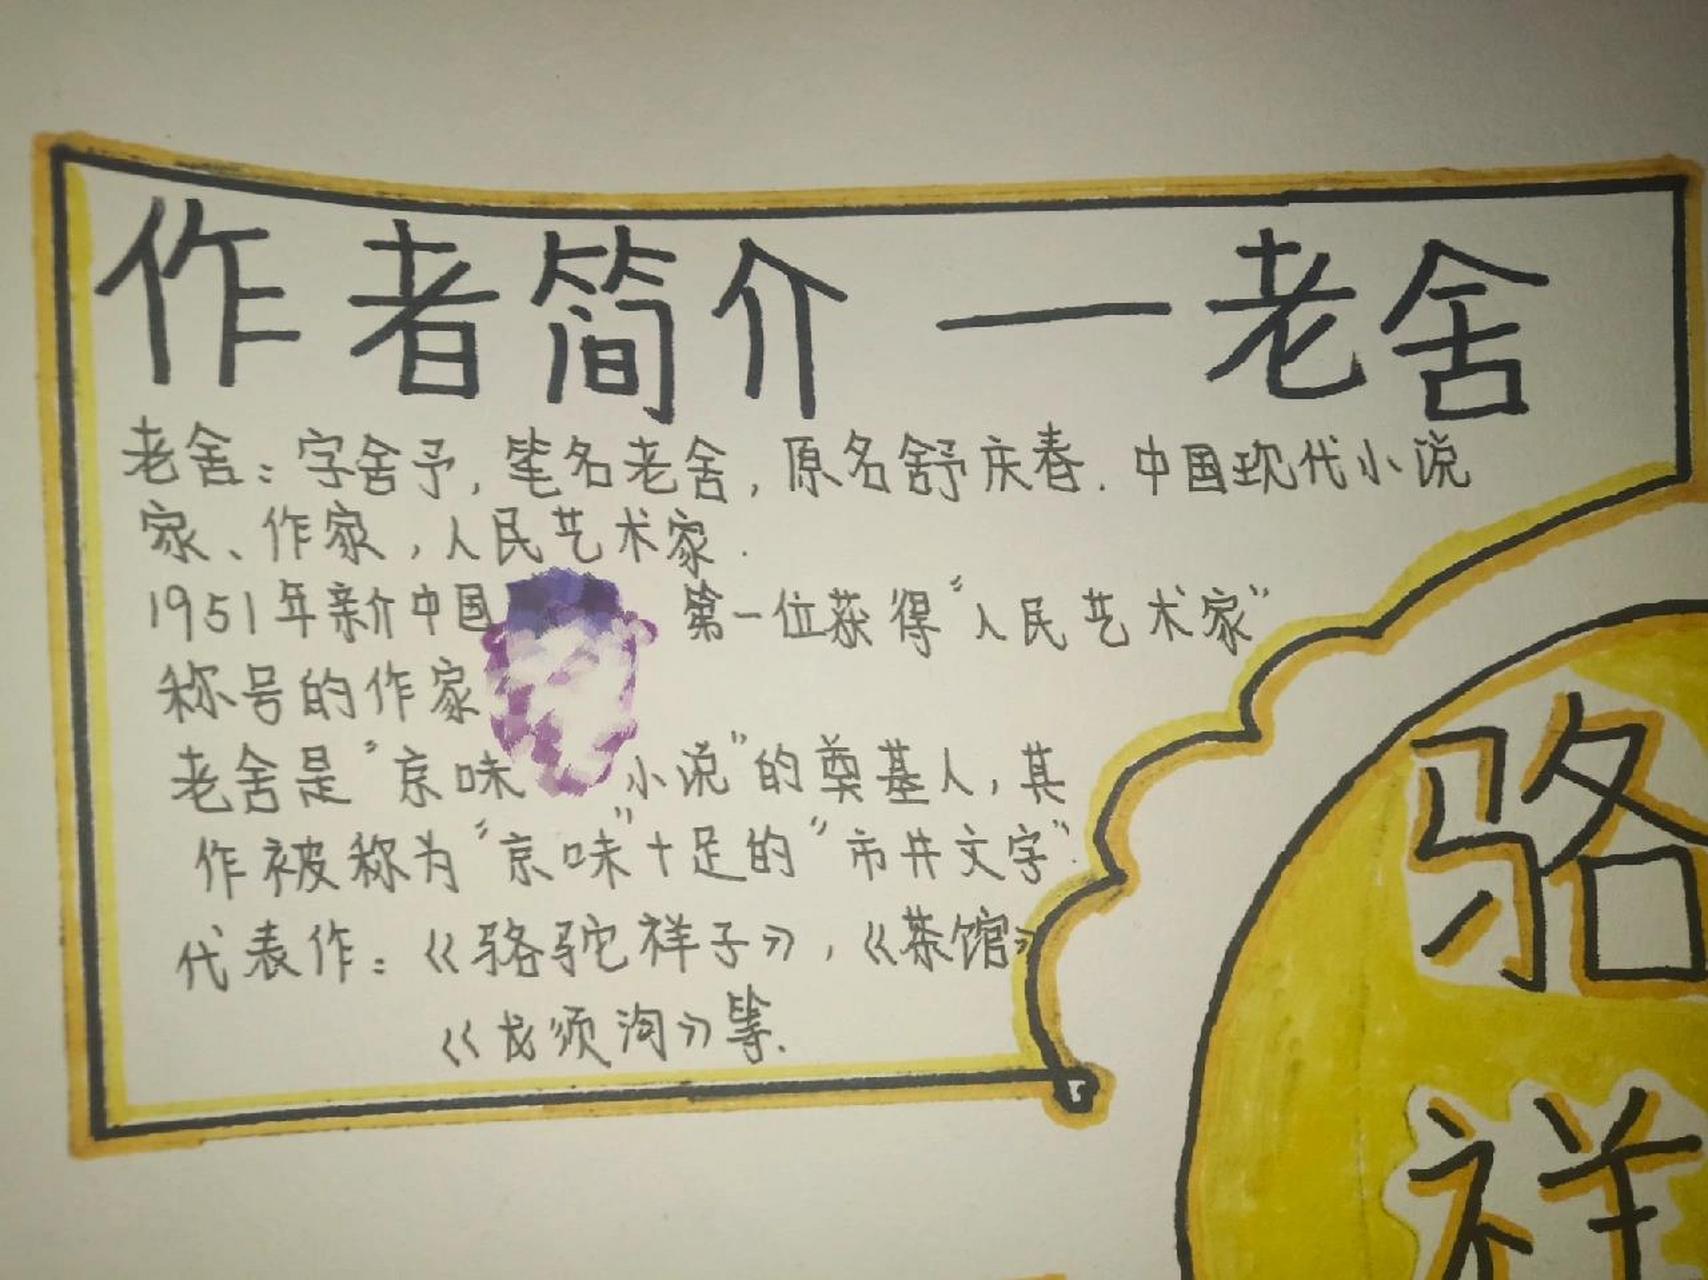 作者简介 — 老舍
老舍：字舍予，笔名老舍，原名舒庆春．中国现代小说
家、作家，人民艺术家．
1951年新介中国 第一位获得“人民艺术家”
称号的作家
老舍是“京味小说”的奠基人，其
作被称为“京味”十足的“市井文字”．
代表作：《骆驼祥子》，《茶馆》
《龙须沟》等．
骆
祥